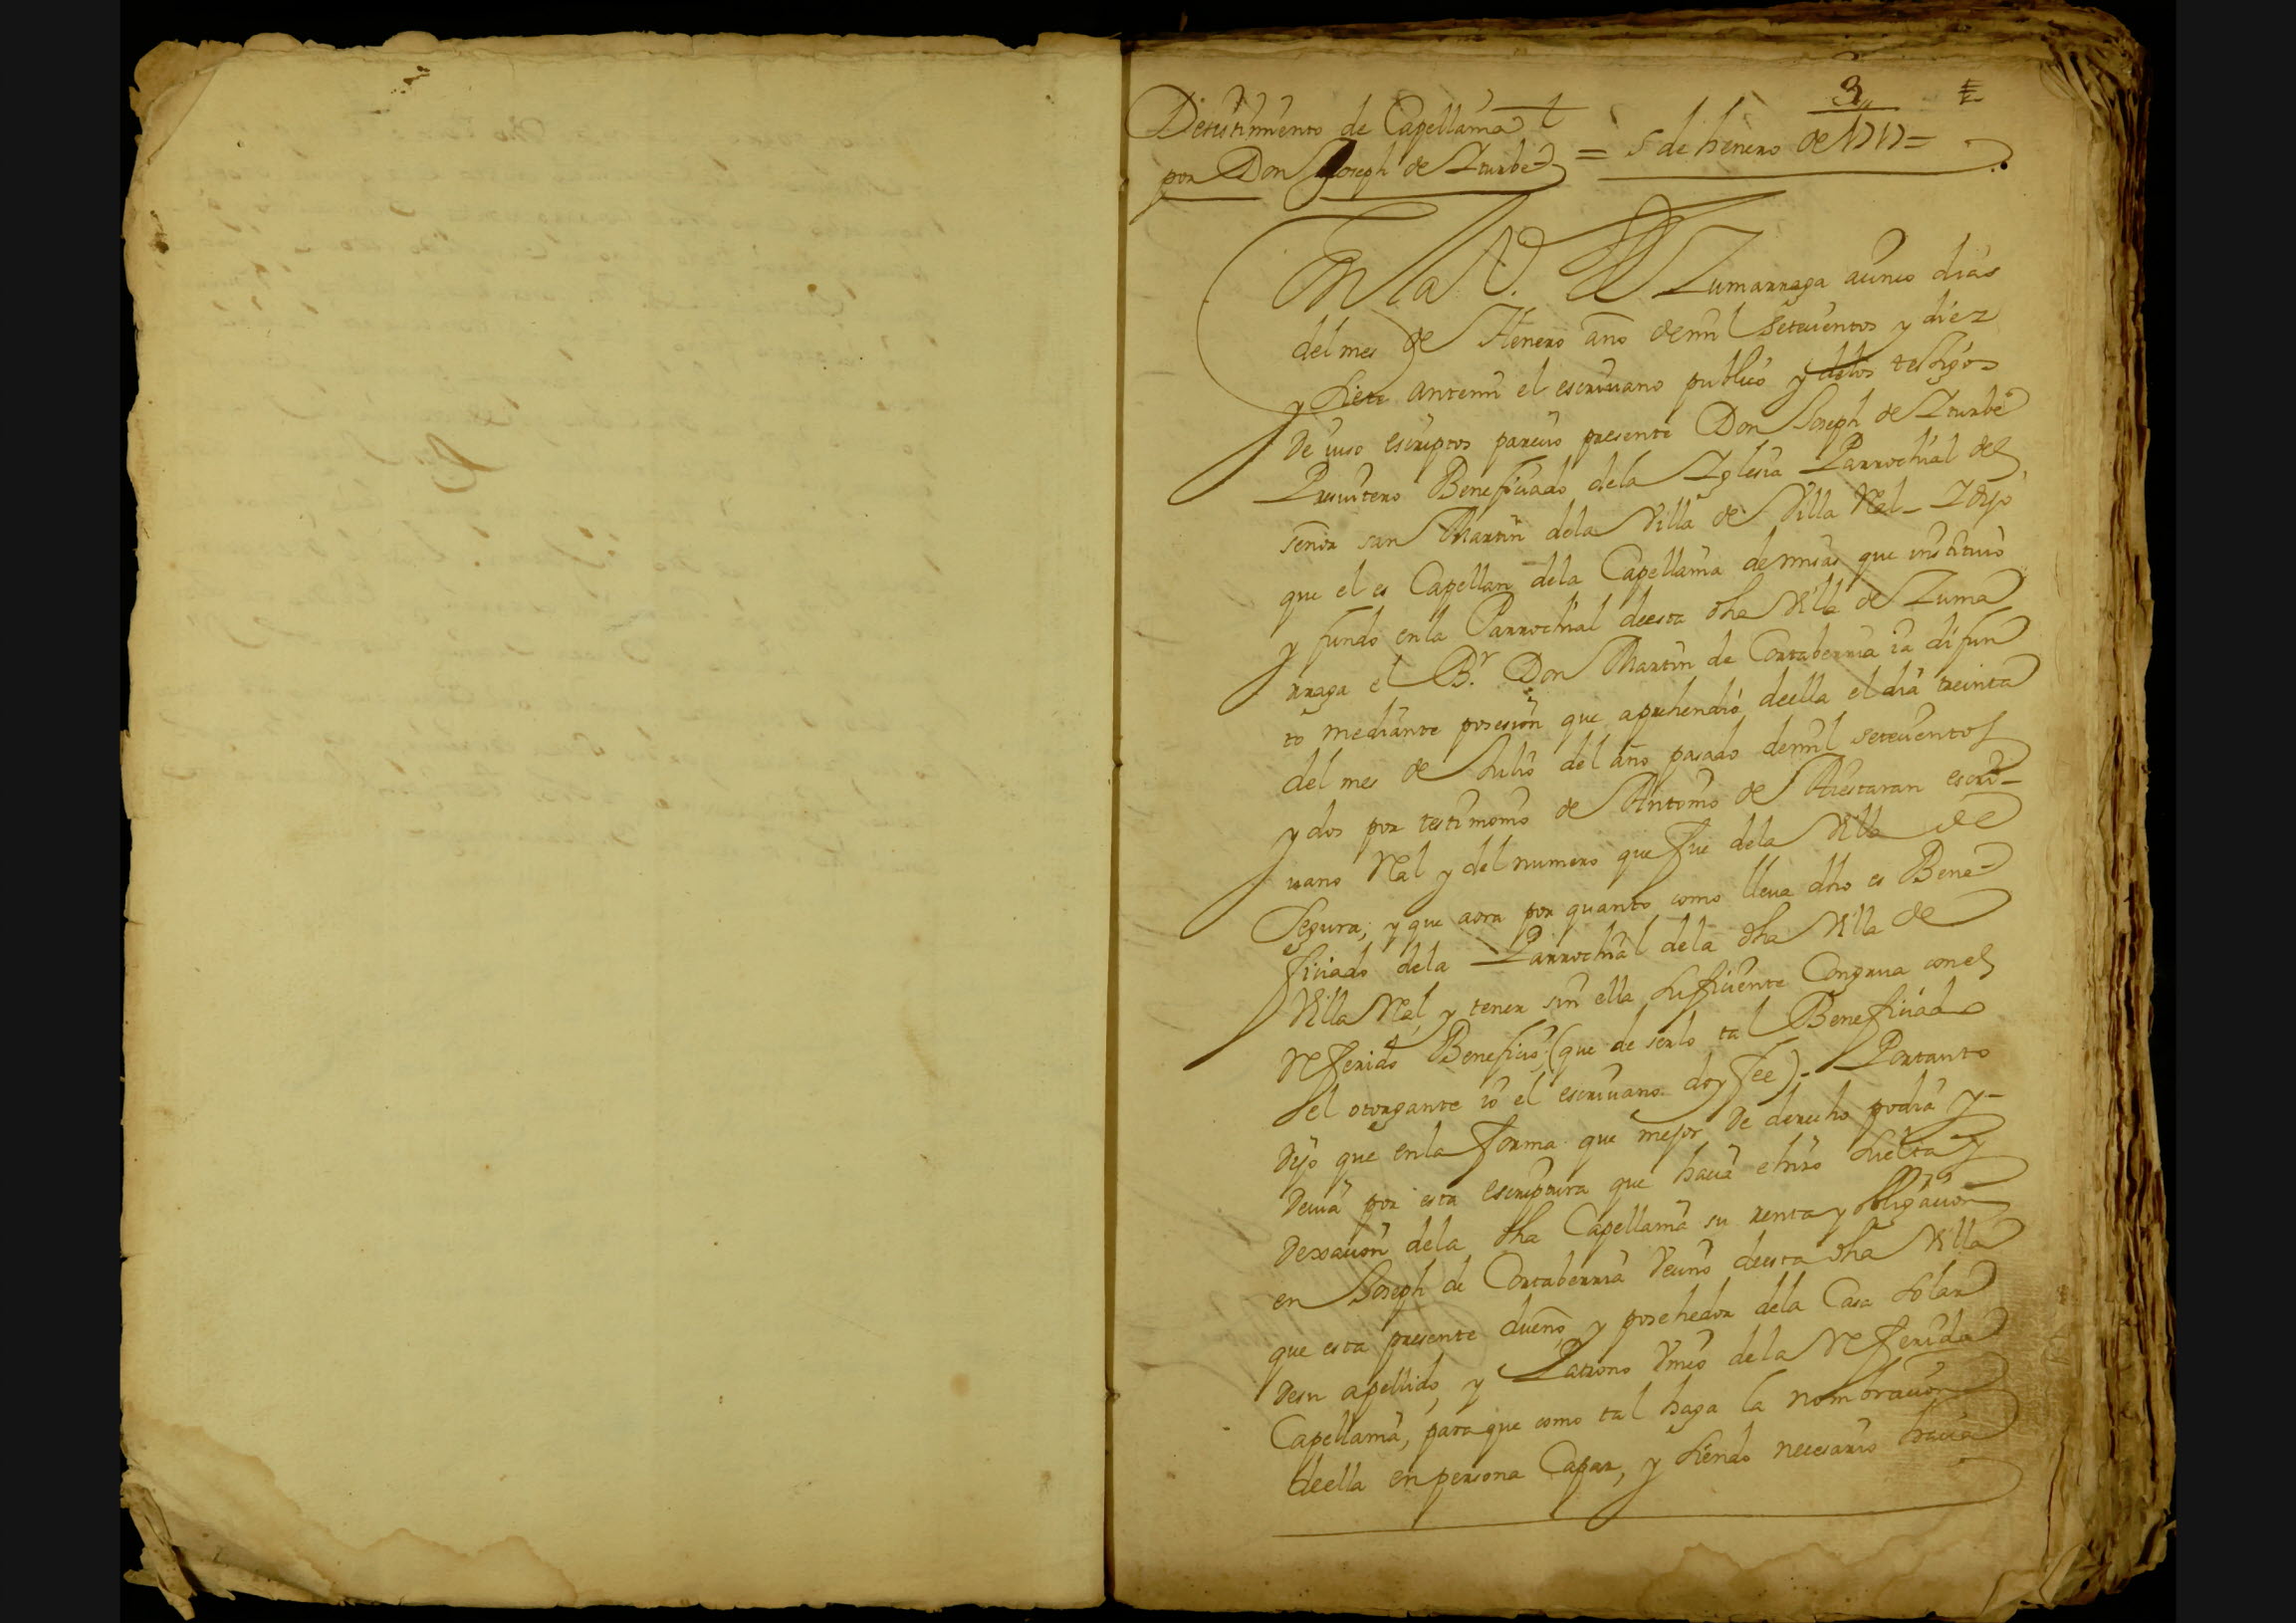 3
Desistimiento de Capellania
por Don Joseph de Yturbe = 5 de henero de 1717 =
En la V. de Zumarraga a cinco dias
del mes de Henero año de mill setecientos y diez
y siete ante mi el escriuano publico y de los testigos
de iuso escriptos parecio presente Don Joseph de Yturbe
Presuitero Beneficiado de la Yglesia Parrochial del
señor san Martin de la Villa de Villa Real - Y dijo
que el es Capellan de la Capellania de misas que instituio
y fundo en la Parrochial de esta dha Villa de Zuma
rraga el B.r Don Martin de Cortaberria ia difun
to mediante posesion que aprehendio de ella el dia treinta
del mes de Julio del año pasado de mill setecientos
y dos por testimonio de Antonio de Aiestaran escri-
uano Real y del numero que fue de la Villa de
Segura; y que aora por quanto como lleua dho es Bene
ficiado de la Parrochial de la dha Villa de
Villa Real, y tener sin ella suficiente Congrua con el
Referido Beneficio; (que de serlo tal Beneficiado
el otorgante io el escriuano doy fee). Portanto
dijo que en la forma que mejor de derecho podia y-
deuia por esta escriptura que hacia e hizo suelta y
dexacion de la dha Capellania su renta y obligacion
en Joseph de Cortaberria Vecino de esta dha Villa
que esta presente dueño y posehedor de la Casa solar
de su apellido, y Patrono Vnico de la Referida
Capellania, para que como tal haga la nombracion
de ella en persona Capaz, y siendo necesario hacia